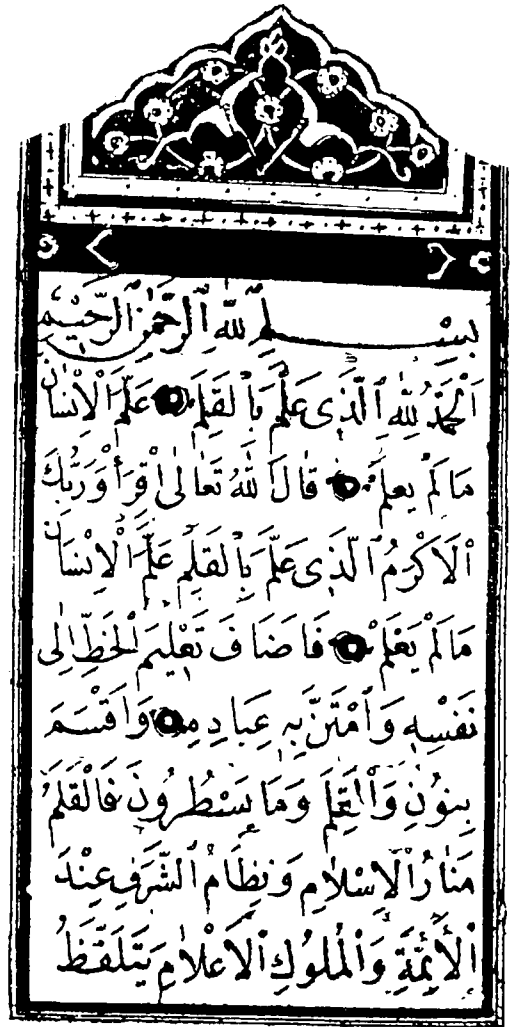 بِسْمِ اللّٰهِ الرَّحْمٰنِ الرَّحِيْمِ
اَلْحَمْدُ لِلّٰهِ الَّذِى عَلَّمَ بِالْقَلَمِ عَلَّمَ الْاِنْسَانَ
مَا لَمْ يَعْلَمْ قَالَ اللّٰهُ تَعَالٰى اِقْرَأْ وَرَبُّكَ
الْاَكْرَمُ الَّذِى عَلَّمَ بِالْقَلَمِ عَلَّمَ الْاِنْسَانَ
مَا لَمْ يَعْلَمْ فَاَضَافَ تَعْلِيمَ الْخَطِّ اِلٰى
نَفْسِهِ وَامْتَنَّ بِهِ عِبَادِهِ وَاَقْسَمَ
بِنُونِ وَالْقَلَمِ وَمَا يَسْطُرُونَ فَالْقَلَمُ
مَنَارُ الْاِسْلَامِ وَنِظَامُ الشَّرَفِ عِنْدَ
الْاَئِمَّةِ وَالْمُلُوكِ الْاَعْلَامِ يَتَلَفَّظُ